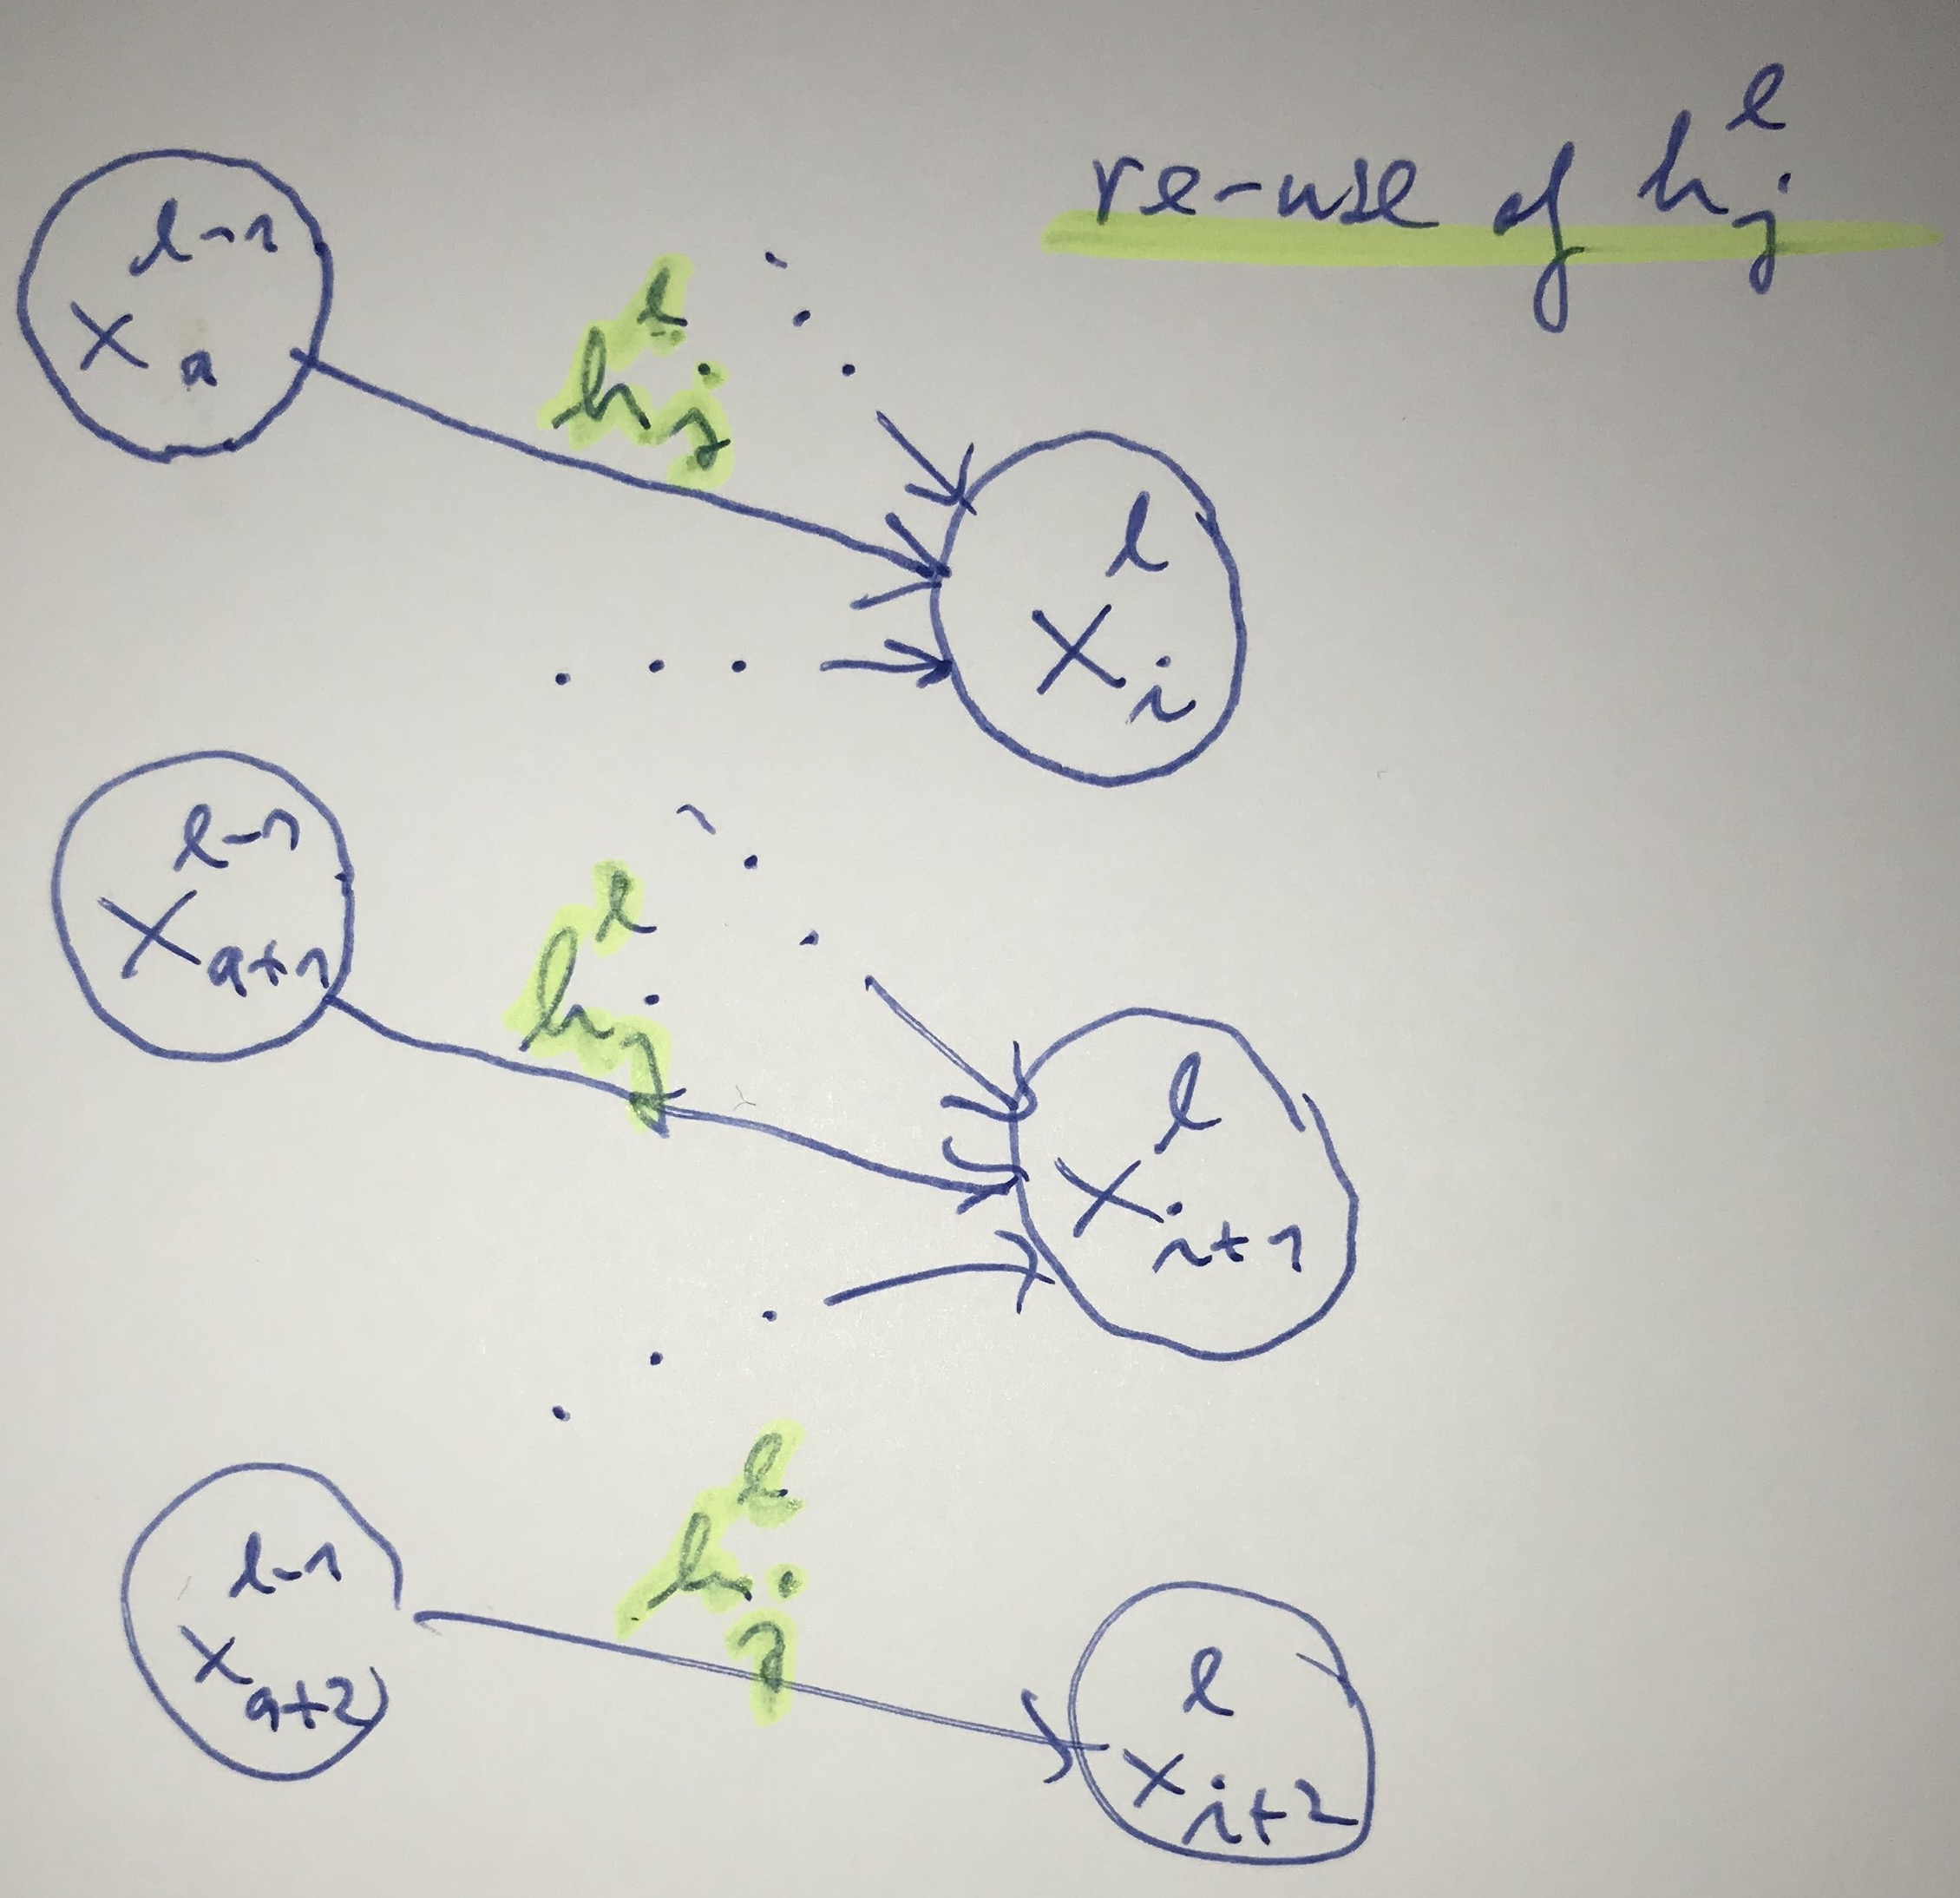 re-use of h_j^l
x_a^{l-1}
h_j^l
x_i^l
x_{a+1}^{l-1}
h_j^l
x_{i+1}^l
h_j^l
x_{a+2}^{l-1}
x_{i+2}^l